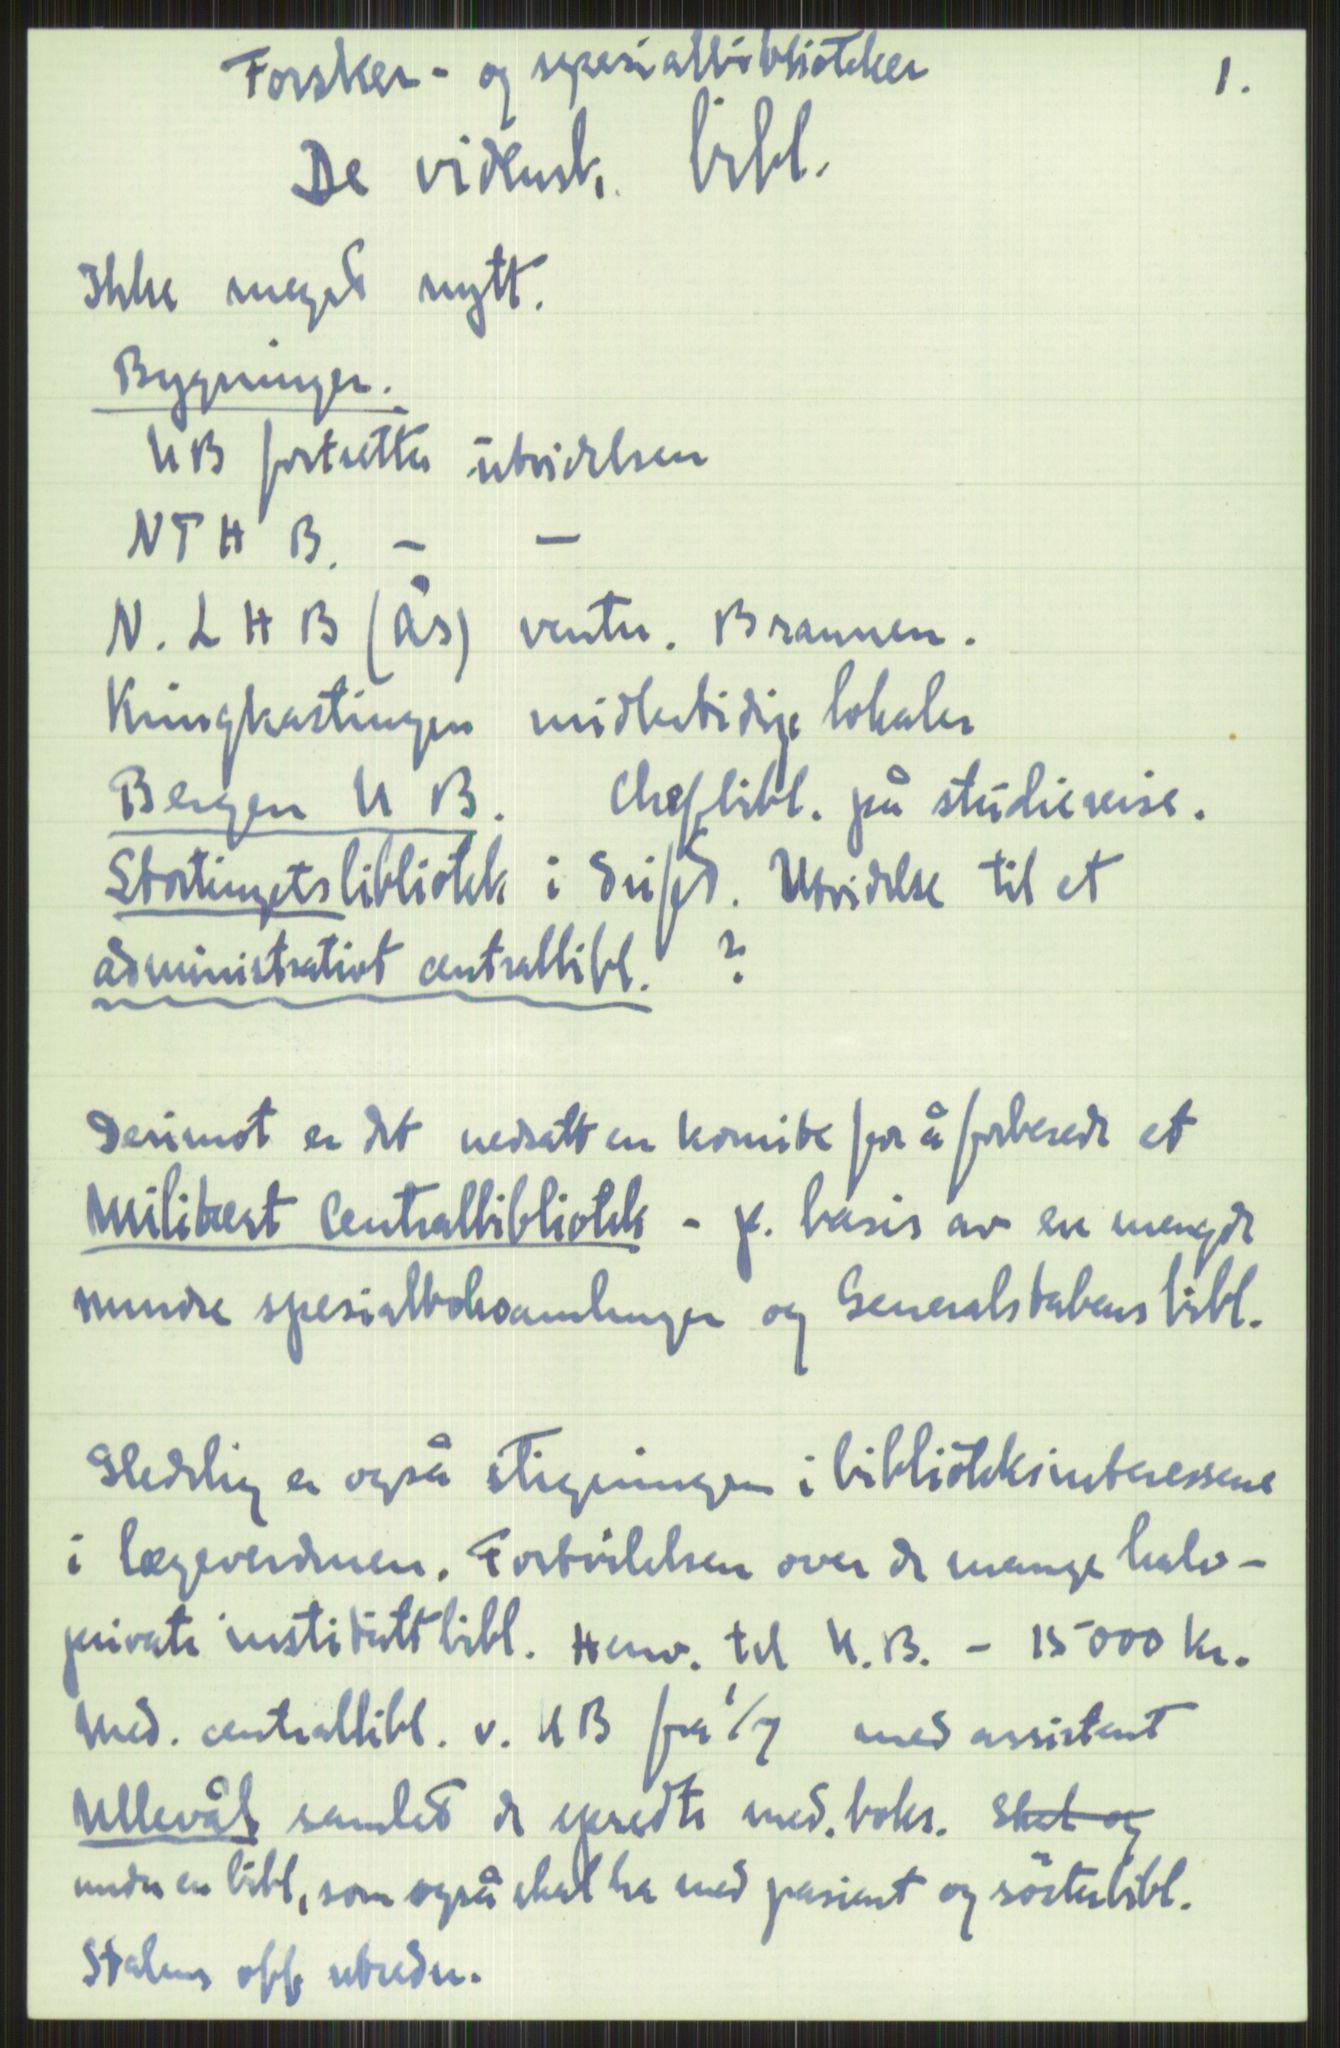 Forsker- og spesialbibliotekeer
1.
De vidensk. bibl.
Ikke meget nytt.
Bygninger.
UB fortsetter utvidelsen
NTH B. - -
N. L H B (Ås) venter. Brannen.
Kringkastingen midlertidige lokaler
Bergen U B. Chefbibl. på studiereise.
Stortingets bibliotek i drift. Utvidelse til et
administrativt centralbibl. ?
Derimot er det nedsatt en komite for å forberede et
Militært Centralbibliotek - p. basis av en mengde
mindre spesialboksamlinger og Generalstabens bibl.
Gledelig er også stigningen i biblioteksinteressene
i lægeverdenen. Fortvilelsen over de mange halv-
private instituttbibl. Henv. til U.B. - 15000 kr.
Med. centralbibl. v. UB fra 1/7 med assistent
Ullevål samlet de spredte med. boks. Skal og
under en bibl, som også skal ha med pasient og søsterbibl.
Statens off utreder.